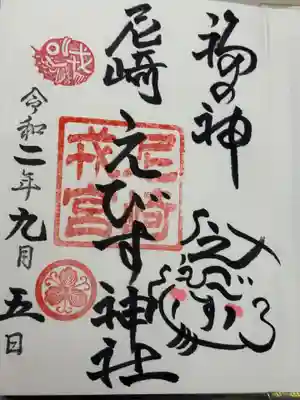 福の神
尼崎えびす神社
尼崎
戎宮
戎
えびす
令和二年九月五日